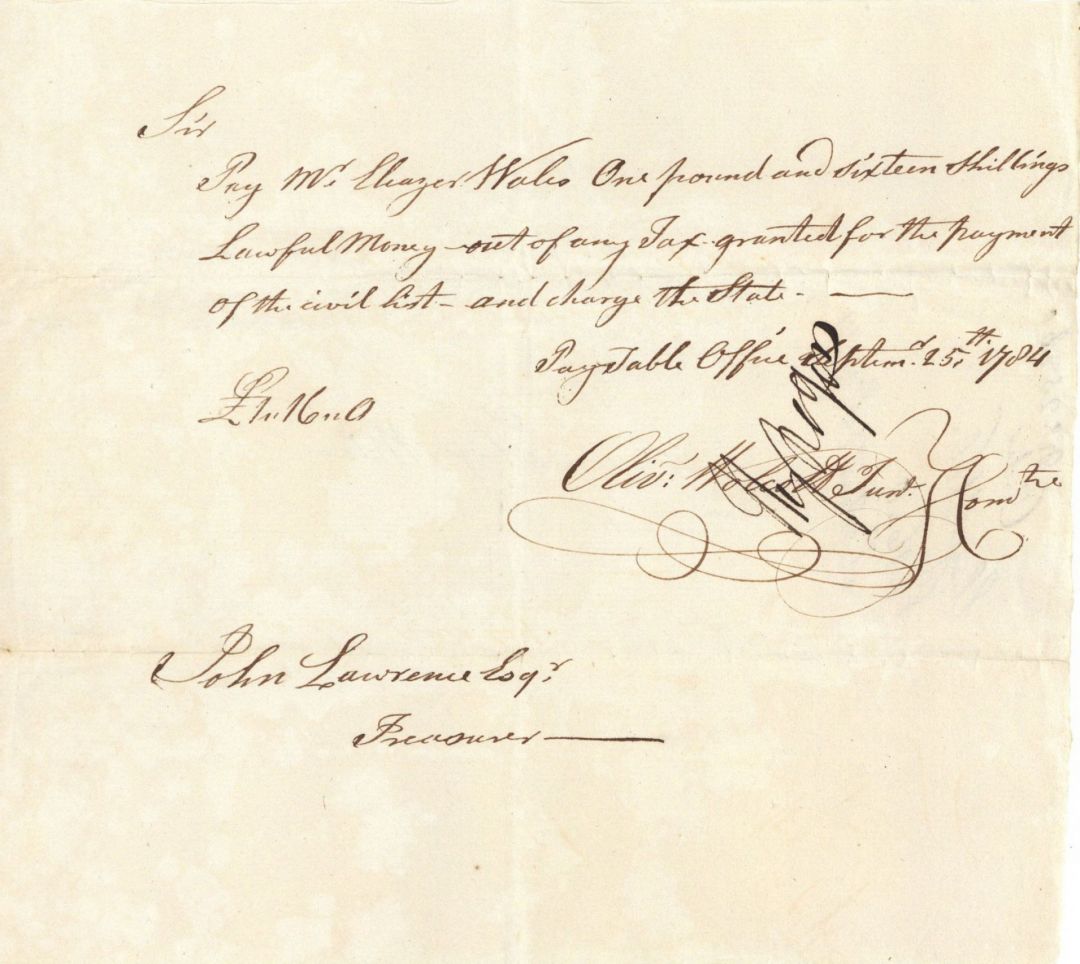 Sir
Pay Mr. Eleazer Wales One pound and sixteen Shillings
Lawful Money out of any Tax granted for the payment
of the civil list - and charge the State. —
Pay Table Office Septemr. 25th. 1784
£1..16..0
Oliv: Wolcott Junr. Comtee
John Lawrence Esqr.
Treasurer —